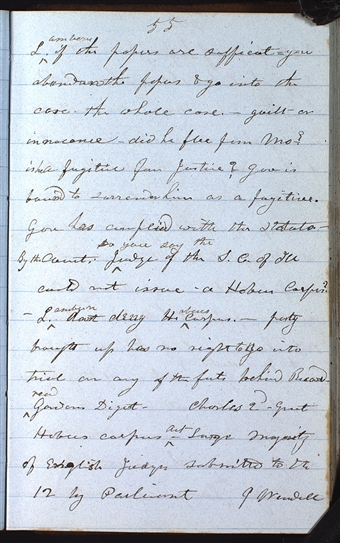 55
L. ambome of the papers are sufficat - you
abandon the papers & go into the
case - the whole case. - guilt or
innocence - did he flee from Mo?
is he a fugitive from Justice? Gov is
bound to surrender him as a fugitive.
Gov has complied with the Statute -
By the Court. do you say the Judge of the S. C. of Ill
could not issue a Habeus Corpus?
- L. dont deny Habeus Corpus. - party
brought up has no right to go into
trial on any of the facts behind Record
read Gowans Digest - Charles 2d - Great
Habeus corpus act - large majority
of English Judges submitted to the
12 by Parliment 9 Wendell